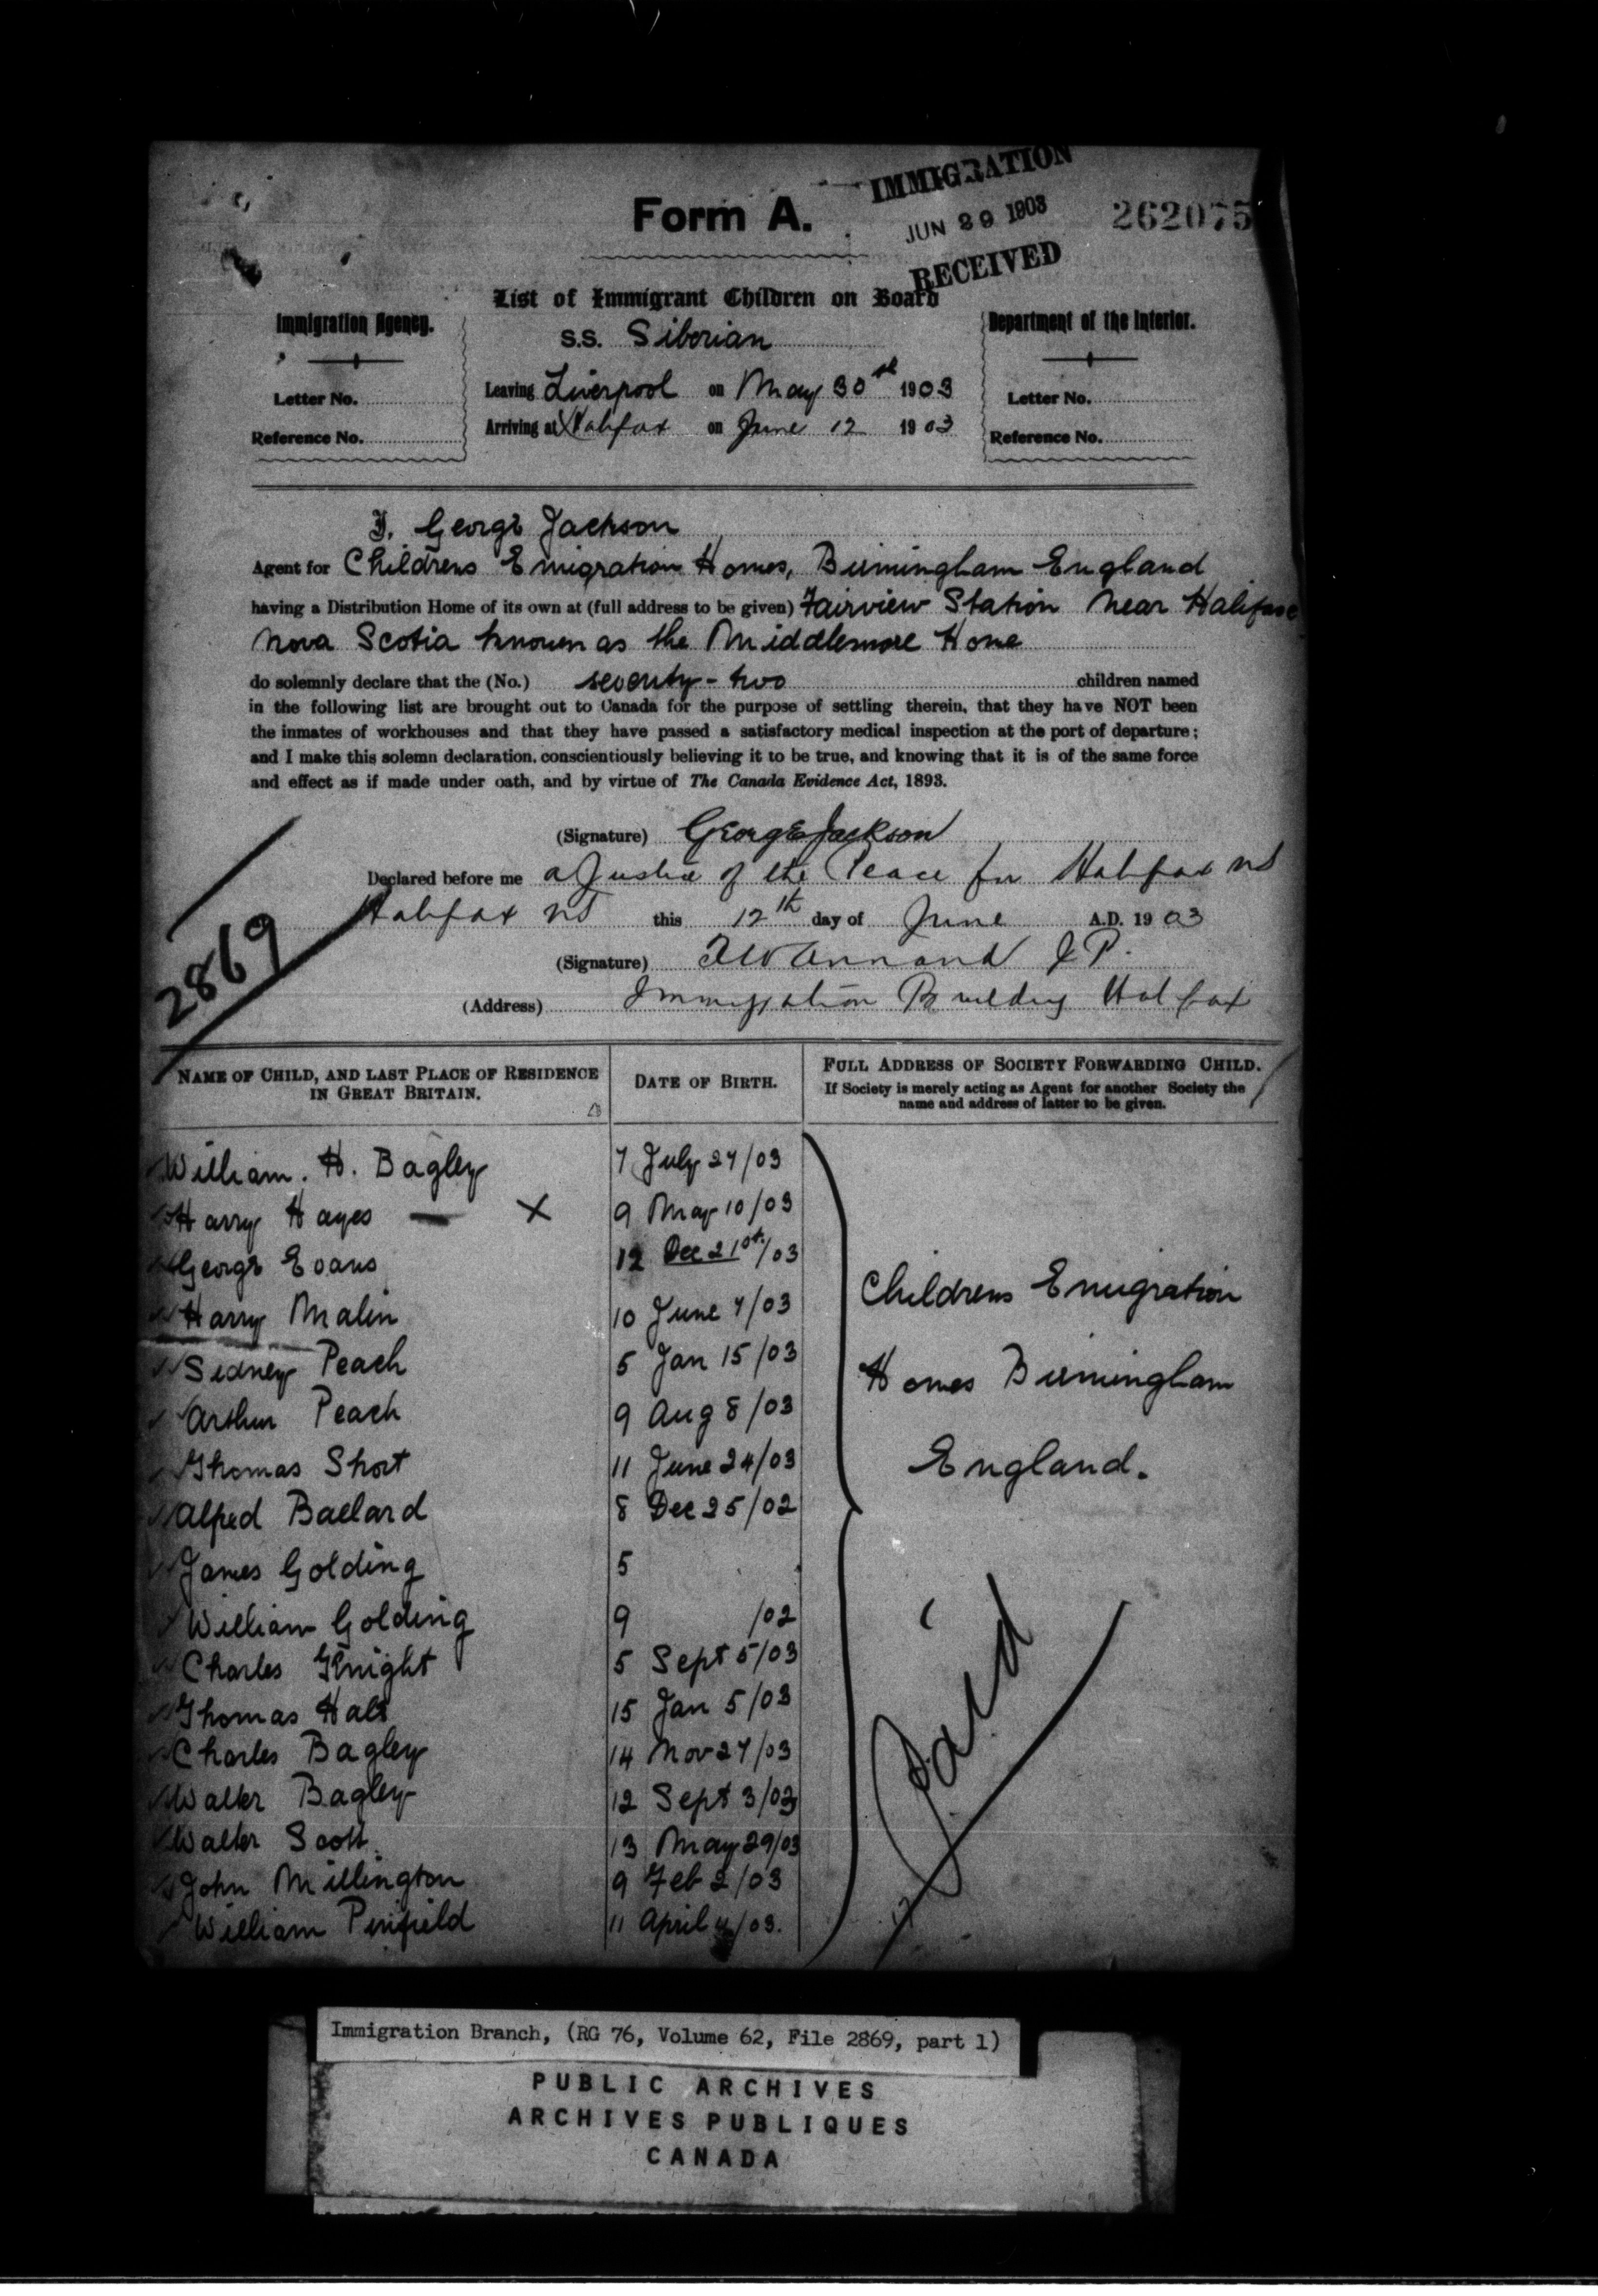 IMMIGRATION
JUN 29 1903
RECEIVED
262075
Form A.
List of Immigrant Children on Board
S.S. Siberian
Leaving Liverpool on May 30th 1903
Arriving at Halifax on June 12 1903
Immigration Agency.
Letter No.
Reference No.
Department of the Interior.
Letter No.
Reference No.
I, George Jackson
Agent for Childrens Emigration Homes, Birmingham England
having a Distribution Home of its own at (full address to be given) Fairview Station near Halifax
Nova Scotia known as the Middlemore Home
do solemnly declare that the (No.) seventy-two children named
in the following list are brought out to Canada for the purpose of settling therein, that they have NOT been
the inmates of workhouses and that they have passed a satisfactory medical inspection at the port of departure;
and I make this solemn declaration, conscientiously believing it to be true, and knowing that it is of the same force
and effect as if made under oath, and by virtue of The Canada Evidence Act, 1893.
(Signature) George Jackson
Declared before me a Justice of the Peace for Halifax NS
Halifax NS this 12th day of June A.D. 1903
(Signature) Annand J.P.
(Address) Immigration Building Halifax
2869
NAME OF CHILD, AND LAST PLACE OF RESIDENCE IN GREAT BRITAIN.
DATE OF BIRTH.
FULL ADDRESS OF SOCIETY FORWARDING CHILD.
If Society is merely acting as Agent for another Society the
name and address of latter to be given.
William. H. Bagley 7 July 27/03
Harry Hayes — X 9 May 10/03
George Evans 12 Dec 21st/03
Harry Malin 10 June 7/03
Sidney Peach 5 Jan 15/03
Arthur Peach 9 Aug 8/03
Thomas Short 11 June 24/03
Alfred Ballard 8 Dec 25/02
James Golding 5
William Golding 9 /02
Charles Knight 5 Sept 5/03
Thomas Halt 15 Jan 5/03
Charles Bagley 14 Nov 27/03
Walter Bagley 12 Sept 3/03
Walter Scott. 13 May 29/03
John Millington 9 Feb 2/03
William Penfield 11 April 4/03.
Childrens Emigration
Homes Birmingham
England.
Paid
Immigration Branch, (RG 76, Volume 62, File 2869, part 1)
PUBLIC ARCHIVES
ARCHIVES PUBLIQUES
CANADA